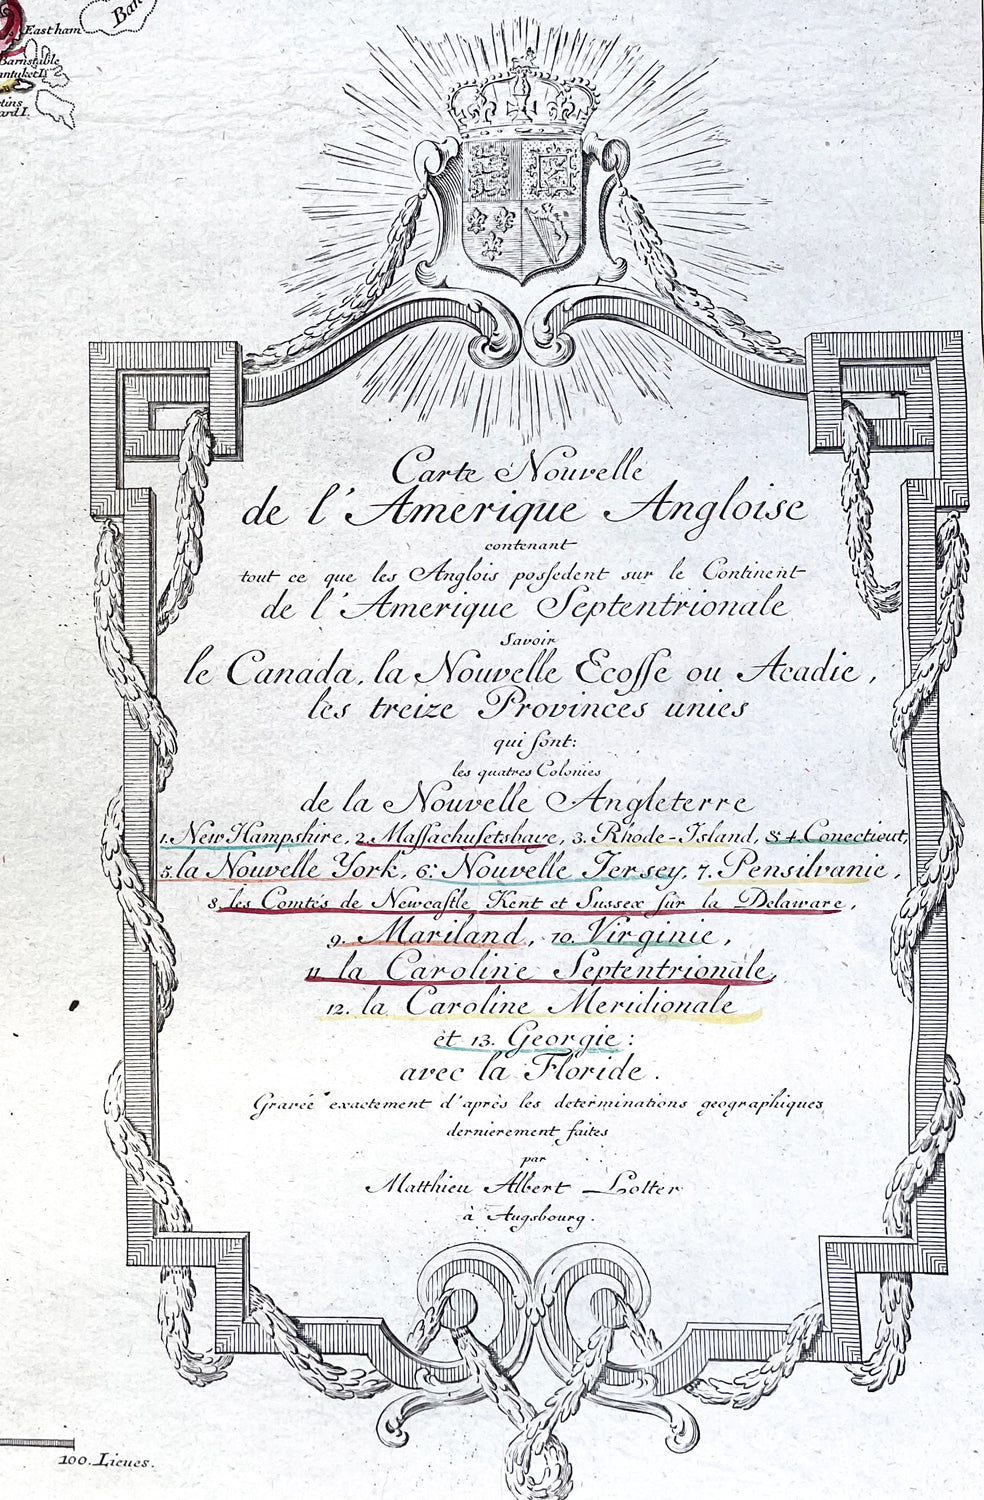 East ham
Ban
Barnstable
antuket I.
tins
ard I.
Carte Nouvelle
de l'Amerique Angloise
contenant
tout ce que les Anglois possedent sur le Continent
de l'Amerique Septentrionale
Savoir
le Canada, la Nouvelle Ecosse ou Acadie,
les treize Provinces unies
qui sont:
les quatres Colonies
de la Nouvelle Angleterre
1. New Hampshire, 2. Massachusetsbaye, 3. Rhode-Island, & 4. Conecticut,
5. la Nouvelle York, 6. Nouvelle Jersey, 7. Pensilvanie,
8. les Comtés de Newcastle Kent et Sussex sur la Delaware,
9. Mariland, 10. Virginie,
11. la Caroline Septentrionale,
12. la Caroline Meridionale
et 13. Georgie:
avec la Floride.
Gravée exactement d'après les determinations geographiques
dernierement faites
par
Matthieu Albert Lotter
à Augsbourg.
100. Lieues.